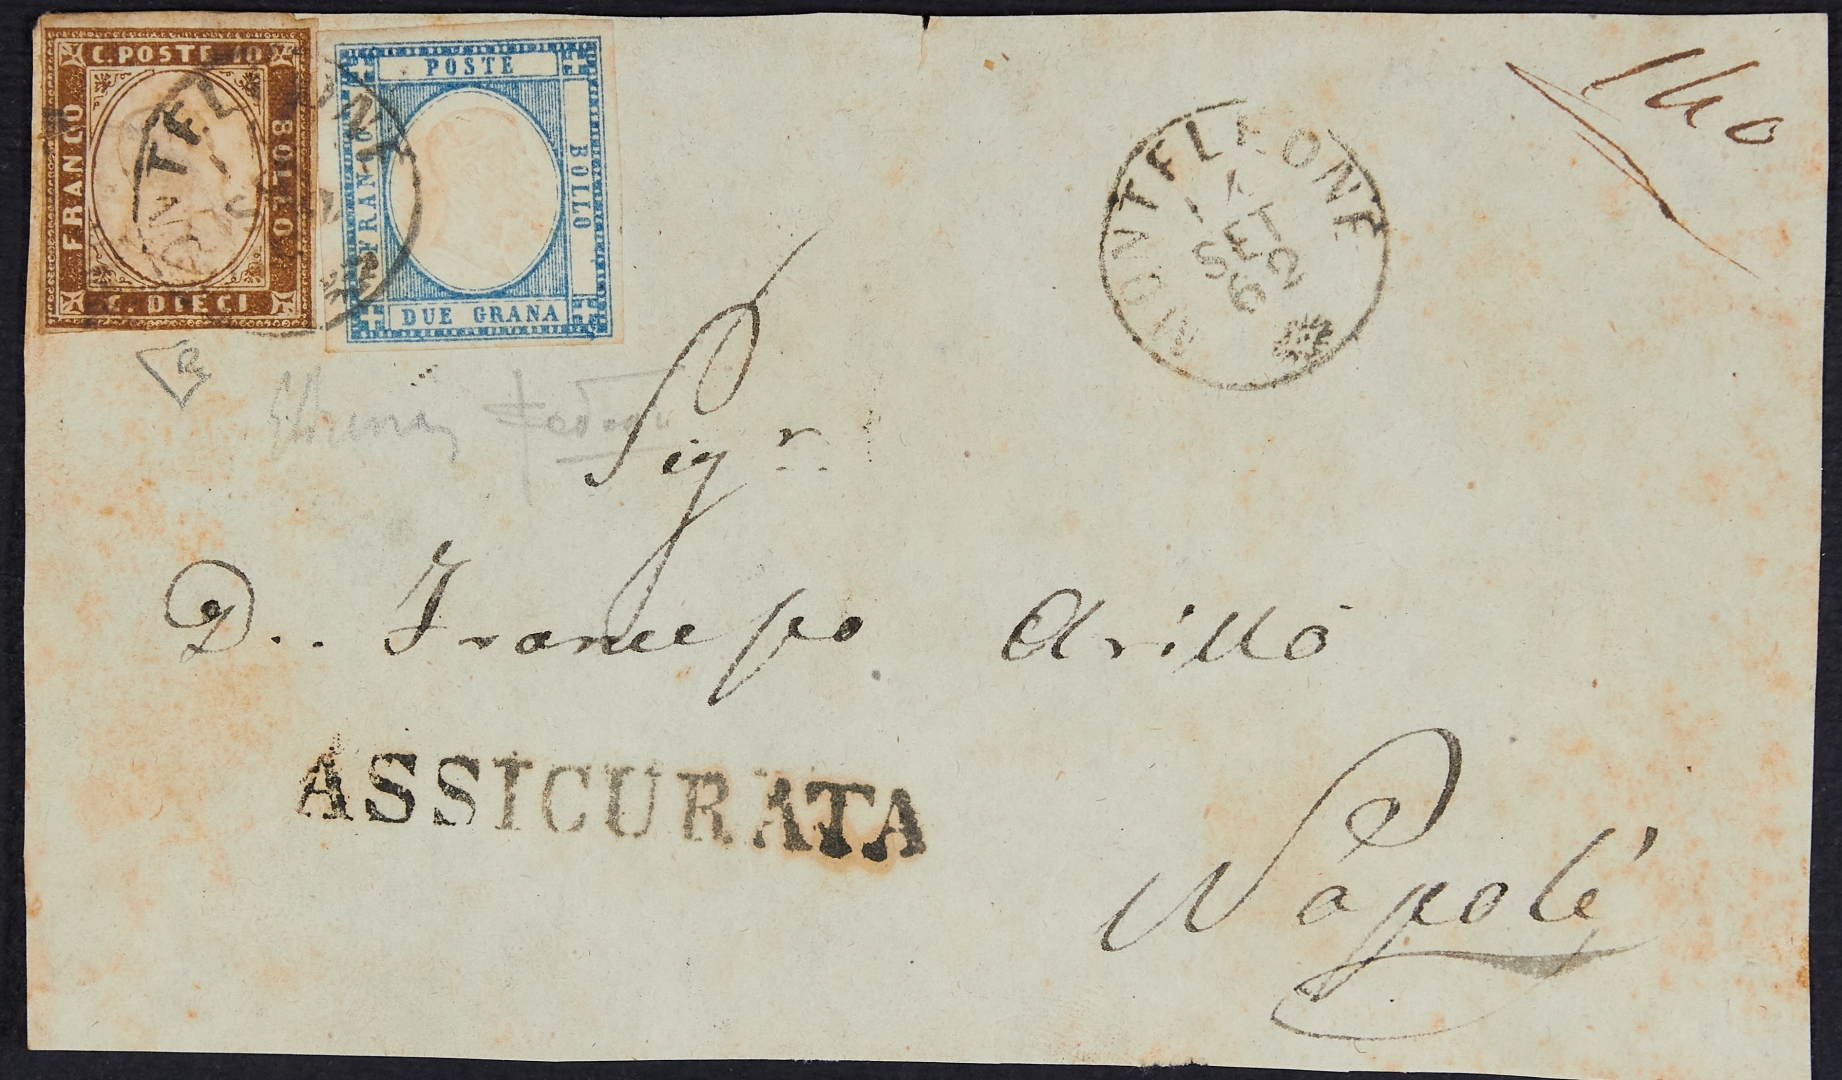 C. POSTE 10
FRANCO
BOLLO
C. DIECI
POSTE
FRANCO
BOLLO
DUE GRANA
MONTELEONE
MONTELEONE
140
Sigr
D. Francesco Arillo
ASSICURATA
Napoli